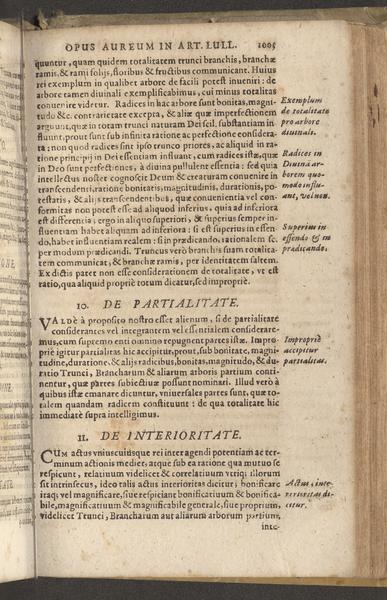 OPUS AUREUM IN ART. LULL. 1005
quuntur, quam quidem totalitatem trunci branchis, branchæ
ramis, & rami folijs, floribus & fructibus communicant. Huius
rei exemplum in qualibet arbore de facili potest inueniri: de
arbore tamen diuinali exemplificabimus, cui minus totalitas
conuenire videtur. Radices in hac arbore sunt bonitas, magni-
tudo &c. contrarietate excepta, & aliæ quæ imperfectionem
arguunt, quæ in totam trunci naturam Dei seil. substantiam in-
fluunt, prout sunt sub infinita ratione ac perfectione considera-
ta: non quod radices sint ipso trunco priores, ac aliquid in ra-
tione principij in Dei essentiam influant, cum radices istæ, quæ
in Deo sunt perfectiones, à diuina pullulent essentia: sed quia
intellectus noster cognoscit Deum & creaturam conuenire in
transcendenti, ratione bonitatis, magnitudinis, durationis, po-
testatis, & alijs transcendentibus, quæ conuenientia vel con-
formitas non potest esse ad aliquod inferius, quia ad inferiora
est differentia; ergo in aliquo superiori, & superius semper in-
fluentiam habet aliquam ad inferiora: si est superius in essen-
do, habet influentiam realem: si in prædicando, rationalem se.
per modum prædicandi. Truncus verò branchis suam totalita-
tem communicat, & branchæ ramis, per identitatem saltem.
Ex dictis patet non esse considerationem de totalitate, vt est
ratio, quia aliquid propriè totum dicatur, sed impropriè.
Exemplum
de totalitate
pro arbore
diuinali.
Radices in
Diuina ar-
borem quo-
modo influ-
ant, vel non.
Superius in
essendo & in
prædicando.
10. DE PARTIALITATE.
VALDÈ à proposito nostro esset alienum, si de partialitate
considerantes vel integrantem vel essentialem considerare-
mus, cum supremo enti omnino repugnent partes istæ. Impro-
priè igitur partialitas hic accipitur, prout, sub bonitate, magni-
tudine, duratione, & alijs radicibus, bonitas, magnitudo, & du-
ratio Trunci, Brancharum & aliarum arboris partium conti-
nentur, quæ partes subiectiuæ possunt nominari. Illud verò à
quibus istæ emanare dicuntur, vniuersales partes sunt, quæ to-
talem quandam radicem constituunt: de qua totalitate hic
immediatè supra intelligimus.
Impropriè
accipitur
partialitas.
11. DE INTERIORITATE.
CUM actus vniuscuiusque rei inter agendi potentiam ac ter-
minum actionis mediet, atque sub ea ratione qua mutuo se
respicunt, relatiuum videlicet & correlatiuum vtriq; illorum
sit intrinsecus, ideo talis actus interioritas dicitur; bonificare
itaq; vel magnificare, siue respiciant bonificatiuum & bonifica-
bile, magnificatiuum & magnificabile generale, siue proprium,
videlicet Trunci, Brancharum aut aliarum arborum partium,
inte-
Actus, inte-
rioritas di-
citur.